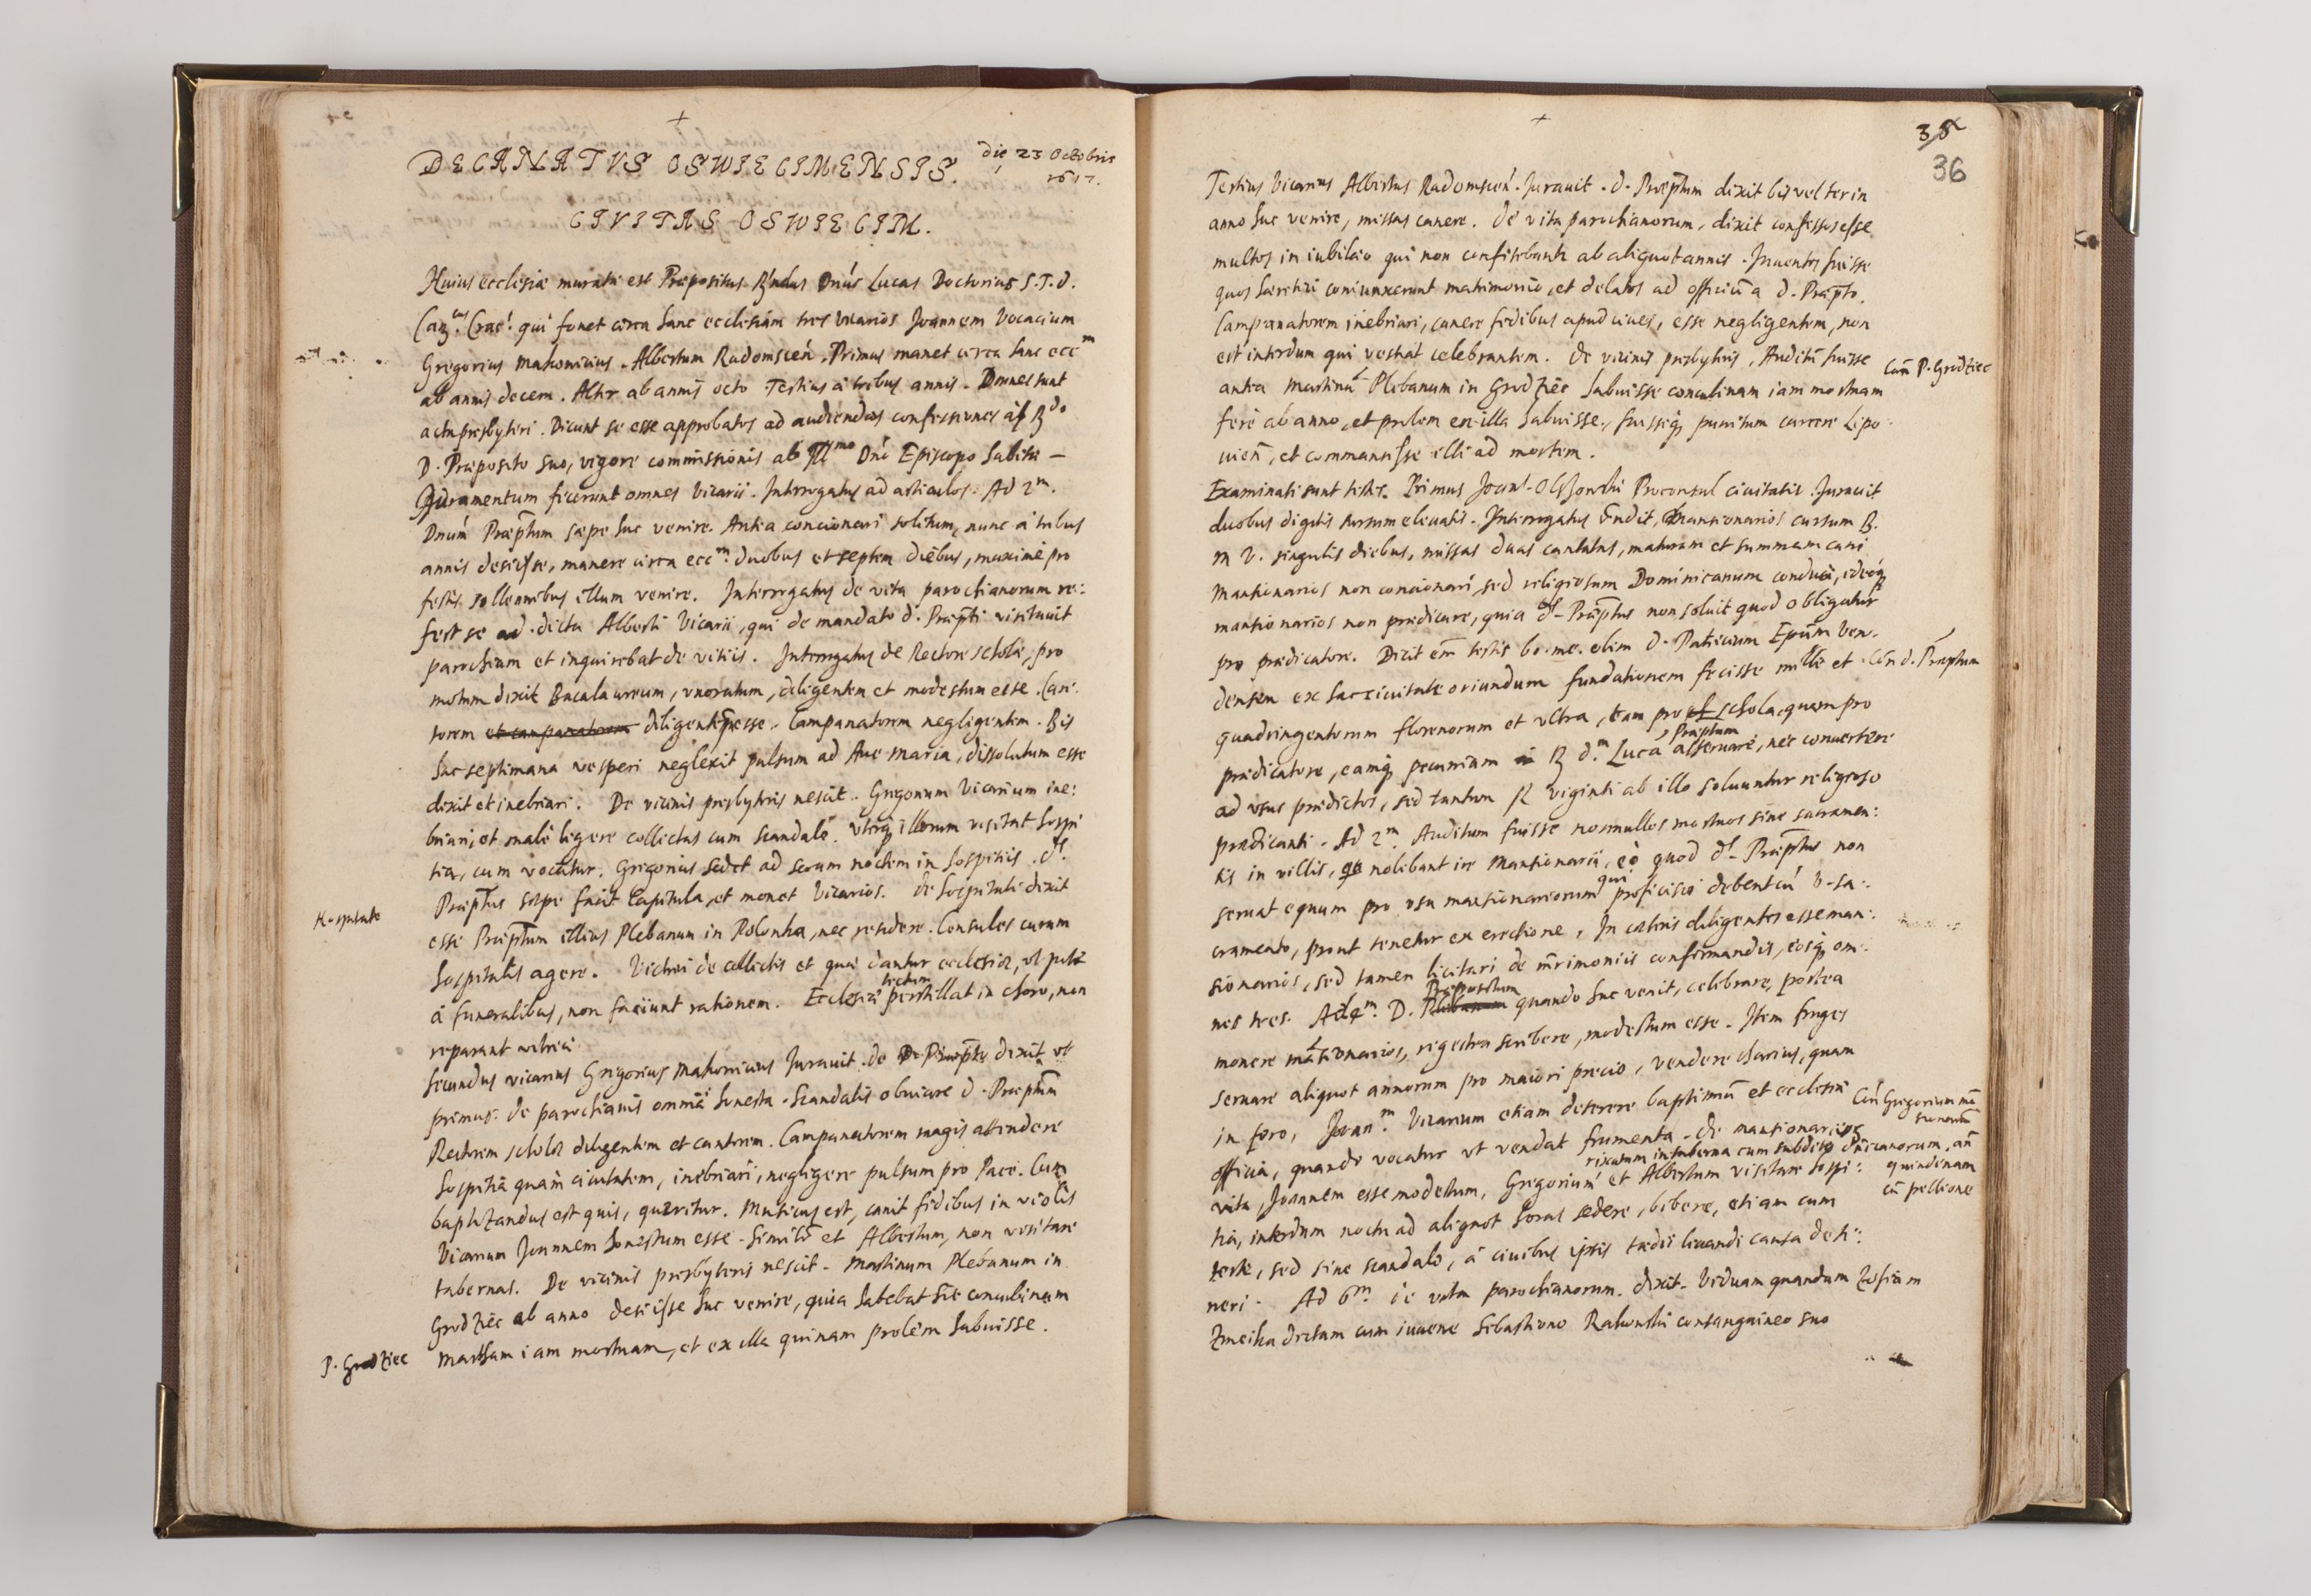 DECANATVS OSWIECIMENSIS.
die 23 Octobris
1617.
CIVITAS OSWIECIM.
Huius ecclesiæ murata est Præpositus Rndus Dnus Lucas Doctorius S.T.D.
Can.cus Crac: qui fouet circa hanc ecclesiam tres vicarios Joannem Vocacium
Gregorius Makonicius. Albertum Radomscen. Primus manet circa hanc eccm
ab annis decem. Alter ab annis octo. Tertius a tribus annis. Omnes sunt
actu presbyteri. Dicunt se esse approbatos ad audiendas confessiones a Rdo
D. Præposito suo, vigore commissionis ab Illmo Dno Episcopo habitæ –
Juramentum fecerunt omnes Vicarii. Interrogatus ad articulos. Ad 2m.
Dnum Præptum sæpe huc venire. Antea concionari solitum, nunc a tribus
annis desiisse, manere circa eccm duobus et septem diebus, maximè pro
festis sollennibus illum venire. Interrogatus de vita parochianorum re:
fert se ad dicta Alberti Vicarii, qui de mandato d. Præpti visitauit
parochiam et inquirebat de vitiis. Interrogatus de Rectore scholæ, pro
motum dixit Bacalaureum, vxoratum, diligentem et modestum esse. Can:
torem et campanatorem diligentem esse. Campanatorem negligentem. Bis
hac septimana vesperi neglexit pulsum ad Aue Maria, dissolutum esse
dixit et inebriari. De vicinis presbyteris nescit. Gregorium Vicarium ine:
briari, et malè legere collectas cum scandalo. vterq illorum visitat hospi
tia, cum vocatur. Gregorius sedet ad seram noctem in hospitiis. d.
Præptus sæpe facit Capitula, et monet Vicarios. De hospitali dixit
Hospitale
esse Præptum illius Plebanum in Polonka, nec residere. Consules curam
hospitalis agere. Vitrici de collectis et quæ dantur ecclesiæ, vt puta
à funeralibus, non faciunt rationem. Ecclesiæ tectum perstillat in choro, non
reparant vitrici.
Secundus vicarius Gregorius Makonicius Jurauit. de D. Præpto dixit vt
primus. de parochianis omnia honesta. Scandalis obuiare d. Præptum
Rectorem scholæ diligentem et cantorem. Campanatorem magis attendere
hospitia quam ciuitatem, inebriari, negligere pulsum pro Pace. Cum
baptizandus est quis, quæritur. Musicus est, canit fidibus in violis
Vicarium Joannem honestum esse. Similr et Albertum, non visitare
tabernas. De vicinis presbyteris nescit. Martinum Plebanum in
Grodziec ab anno desiisse huc venire, quia habebat hic concubinam
P. Grodziec
Martham iam mortuam, et ex illa quinam prolem habuisse.
35
36
Tertius Vicarius Albertus Radomscen. Jurauit. d. Præptum dixit bis vel ter in
anno huc venire, missas canere. De vita parochianorum, dixit confessos esse
multos in iubilæo qui non confitebantr ab aliquot annis. Inuentos fuisse
quos hæretici coniunxerunt matrimonio, et delatos ad officiu a d. Præpto.
Campanatorem inebriari, canere fidibus apud ciues, esse negligentem, non
est interdum qui vestiat celebrantem. De vicinis presbyteris, Auditu fuisse
Con P. Grodziec
antea Martinu Plebanum in Grodziec habuisse concubinam iam mortuam
ferè ab anno, et prolem ex illa habuisse, fuisseq punitum carcere Lipo
uien, et commansisse illi ad mortem.
Examinati sunt testes. Primus Joans Olszowski Proconsul ciuitatis. Jurauit
duobus digitis sursum eleuatis. Interrogatus rndit, Mansionarios cursum B.
M V. singulis diebus, missas duas cantatas, maturam et summam cani
Mansionarios non concionari, sed religiosum Dominicanum conduci, ideoq
mansionarios non prædicare, quia d. Præptus non soluit quod obligatur
pro prædicatore. Dixit em testis bo. me. olim d. Paticium Epum Ven-
densem ex hac ciuitate oriundum fundationem fecisse mille et
Con d. Præptum
quadringentorum florenorum et vltra, tam pro schola, quam pro
prædicatore, eamq pecuniam R d.m Luca Præptum asseruare, nec conuertere
ad vsus prædictos, sed tantum fl viginti ab illo soluuntur religioso
prædicanti. Ad 2m. Auditum fuisse nonnullos mortuos sine sacramen:
tis in villis, nolebant ire Mansionarii, eò quod d. Præptus non
seruat equum pro vsu mansionariorum qui proficisci debent cu V. Sa:
cramento, prout tenetur ex erectione. In cæteris diligentes esse man:
sionarios, sed tamen licitari de mrimoniis confirmandis, eosq om:
nes tres. Ad 4m. D. Plebanum Præpositum quando huc venit, celebrare, postea
monere mationarios, regestra scribere, modestum esse. Item fruges
seruare aliquot annorum pro maiori precio, vendere charius, quam
in foro, Joan.m Vicarium etiam deserere baptismu et ecclesiæ
Con Gregorium ma
sionariu
officia, quando vocatur vt vendat frumenta. De mansionariorum
vita, Joannem esse modestum, Gregorium rixatum in taberna cum subdito Dnicanorum, an quindenam cu pellione
et Albertum visitare hospi:
tia, interdum noctu ad aliquot horas sedere, bibere, etiam cum
teste, sed sine scandalo, à ciuibus ipsis tædii leuandi causa deti:
neri. Ad 6m. de vita parochianorum. dixit. Viduam quandam Zofiam
Zmeika dictam cum iuuene Sebastiano Rakowski consanguineo suo